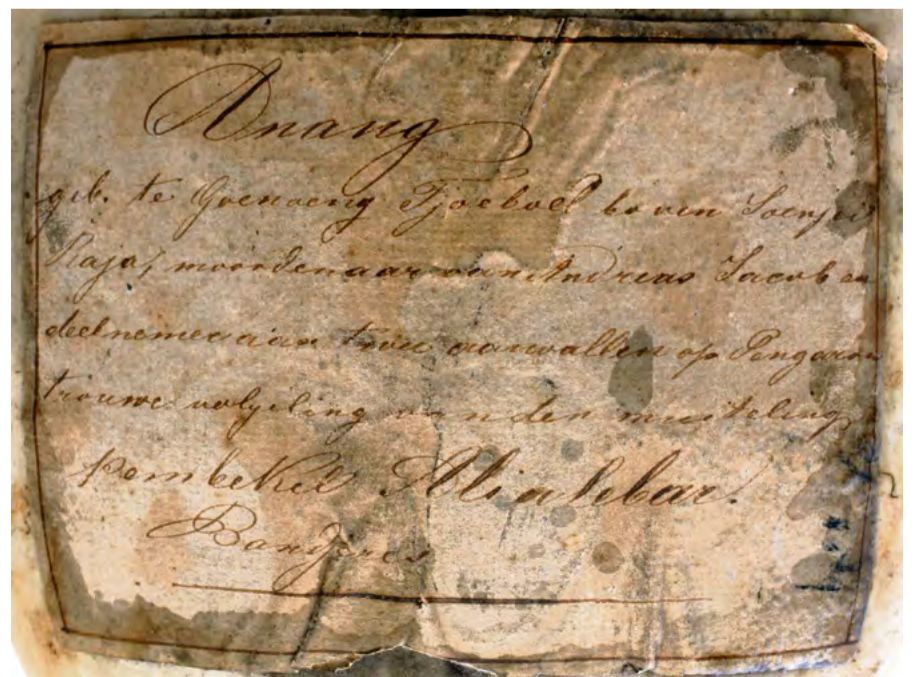 Anang
geb. te Goenoeng Tjoeboel boven Soengei
Raja, moordenaar van Andreas Jacob en
deelnemer aan twee aanvallen op Pengaron
trouwe volgeling van den muiteling
Pembekel Aliakbar.
Bandjrees